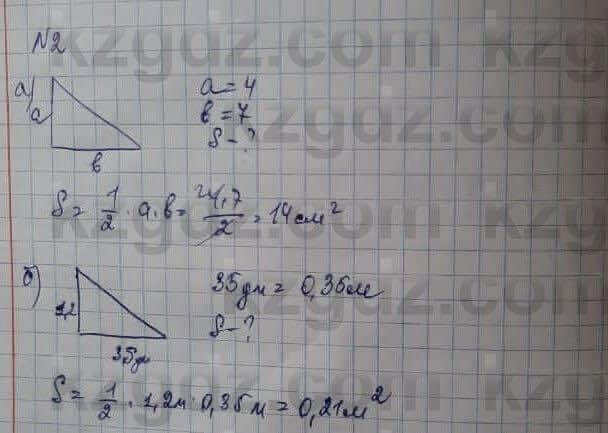 №2
а)
а
в
а=4
в=7
S-?
S= 1/2 · а·в= 4·7/2 = 14 см²
б)
1,2
3,5дм
35дм = 0,35м
S-?
S= 1/2 · 1,2м · 0,35м = 0,21м²
kzgdz.com